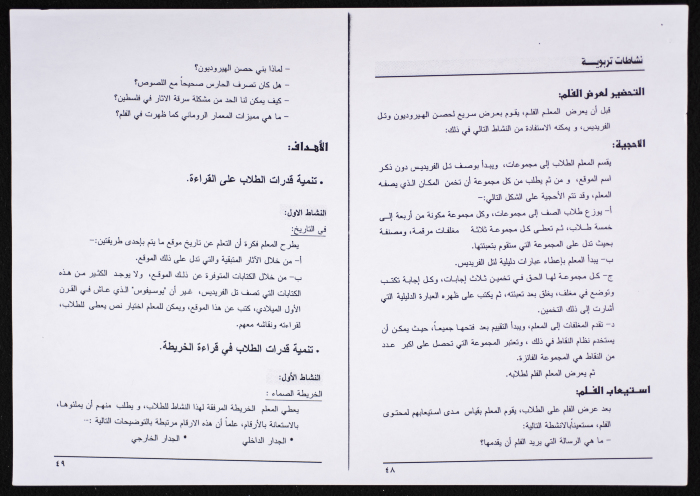 نشاطات تربويـــة
التحضير لعرض الفلم:
قبل أن يعرض المعلم الفلم، يقوم بعرض سريع لحصن الهيروديون وتل
الفريديس، و يمكنه الاستفادة من النشاط التالي في ذلك:
الاحجية:
يقسم المعلم الطلاب إلى مجموعات، ويبدأ بوصف تل الفريديس دون ذكر
اسم الموقع، و من ثم يطلب من كل مجموعة أن تخمن المكان الذي يصفه
المعلم، وقد تتم الأحجية على الشكل التالي:-
أ- يوزع طلاب الصف إلى مجموعات، وكل مجموعة مكونة من أربعة إلى
خمسة طلاب، ثم تعطى كل مجموعة ثلاثة مغلفات مرقمة، ومصنفة
بحيث تدل على المجموعة التي ستقوم بتعبئتها.
ب- يبدأ المعلم بإعطاء عبارات دليلية لتل الفريديس.
ج- كل مجموعة لها الحق في تخمين ثلاث إجابات، وكل إجابة تكتب
وتوضع في مغلف، يغلق بعد تعبئته، ثم يكتب على ظهره العبارة الدليلية التي
أشارت إلى ذلك التخمين.
د- تقدم المغلفات إلى المعلم، ويبدأ التقييم بعد فتحها جميعاً، حيث يمكن أن
يستخدم نظام النقاط في ذلك ، وتعتبر المجموعة التي تحصل على اكبر عدد
من النقاط هي المجموعة الفائزة.
ثم يعرض المعلم الفلم لطلابه.
استيعاب الفلم:
بعد عرض الفلم على الطلاب، يقوم المعلم بقياس مدى استيعابهم لمحتوى
الفلم، مستعيناًبالانشطة التالية:
- ما هي الرسالة التي يريد الفلم أن يقدمها؟
٤٨
- لماذا بني حصن الهيروديون؟
- هل كان تصرف الحارس صحيحاً مع اللصوص؟
- كيف يمكن لنا الحد من مشكلة سرقة الاثار في فلسطين؟
- ما هي مميزات المعمار الروماني كما ظهرت في الفلم؟
الأهداف:
• تنمية قدرات الطلاب على القراءة.
النشاط الاول:
في التاريخ:
يطرح المعلم فكرة أن التعلم عن تاريخ موقع ما يتم بإحدى طريقتين:-
أ- من خلال الآثار المتبقية والتي تدل على ذلك الموقع.
ب- من خلال الكتابات المتوفرة عن ذلك الموقع، ولا يوجد الكثير من هذه
الكتابات التي تصف تل الفريديس، غير أن "يوسيفوس" الذي عاش في القرن
الأول الميلادي، كتب عن هذا الموقع، ويمكن للمعلم اختيار نص يعطى للطلاب،
لقراءته ونقاشه معهم.
• تنمية قدرات الطلاب في قراءة الخريطة.
النشاط الأول:
الخريطة الصماء :
يعطي المعلم الخريطة المرفقة لهذا النشاط للطلاب، و يطلب منهم أن يملئوها،
بالاستعانة بالأرقام، علماً أن هذه الارقام مرتبطة بالتوضيحات التالية :-
* الجدار الداخلي * الجدار الخارجي
٤٩